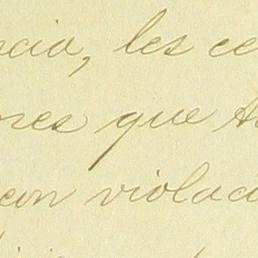 cia, les ce
ores que
con violac